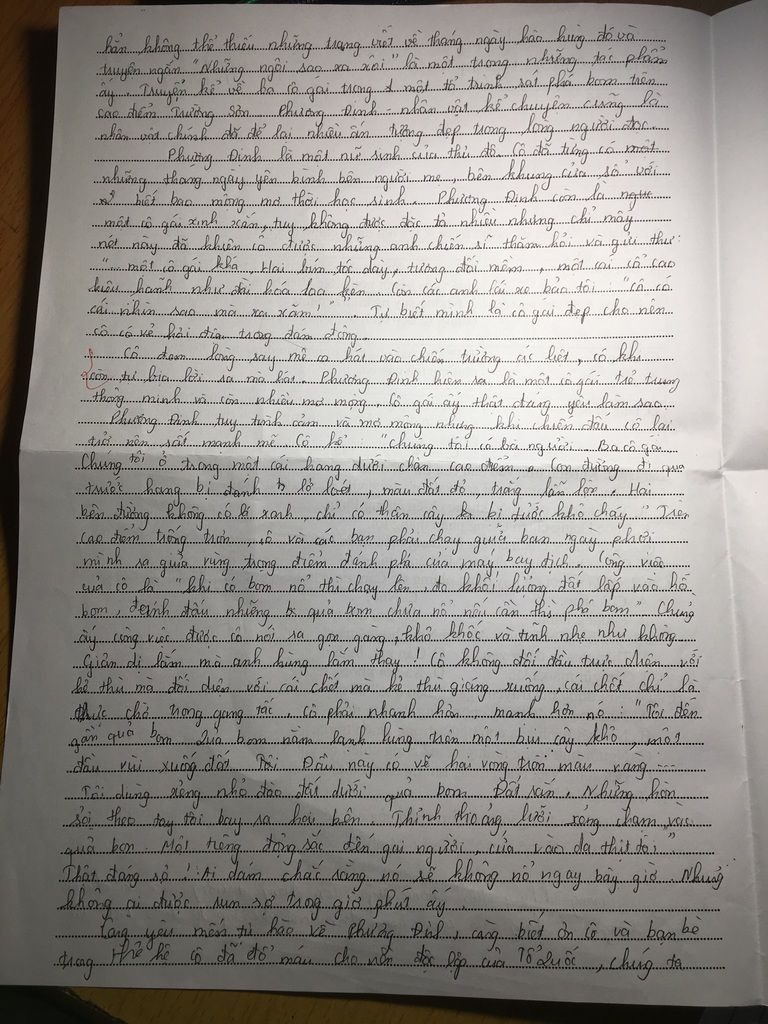 hẳn không thể thiếu những trang viết về tháng ngày hào hùng đó và
truyện ngắn "Những ngôi sao xa xôi" là một trong những tác phẩm
ấy. Truyện kể về ba cô gái trong 1 một tổ trinh sát phá bom trên
cao điểm Trường Sơn. Phương Định - nhân vật kể chuyện cũng là
nhân vật chính đã để lại nhiều ấn tượng đẹp trong lòng người đọc.
Phương Định là một nữ sinh của thủ đô. Cô đã từng có một
những tháng ngày yên bình bên người mẹ, bên khung cửa sổ với
biết bao mộng mơ thời học sinh. Phương Định còn là
một cô gái xinh xắn, tuy không được đặc tả nhiều nhưng chỉ mấy
nét này đã khiến cô được những anh chiến sĩ thăm hỏi và gửi thư:
"... một cô gái khá. Hai bím tóc dày, tương đối mềm, một cái cổ cao
kiêu hãnh như đài hoa loa kèn. Còn các anh lái xe bảo tôi: "Cô có
cái nhìn sao mà xa xăm!". Tự biết mình là cô gái đẹp cho nên
cô có vẻ hài đứa trong đám đông.
Cô đem lòng say mê ca hát vào chiến trường ác liệt, có khi
còn tự bịa lời ra mà hát. Phương Định hiện ra là một cô gái trẻ trung
thông minh và còn nhiều mơ mộng. Cô gái ấy thật đáng yêu làm sao
Phương Định tuy tình cảm và mơ mộng nhưng khi chiến đấu cô lại
trở nên rất mạnh mẽ. Cô kể: "Chúng tôi có ba người. Ba cô gái
Chúng tôi ở trong một cái hang dưới chân cao điểm. Con đường đi qua
trước hang bị đánh lở loét, màu đất đỏ, trắng lẫn lộn. Hai
bên đường không có lá xanh, chỉ có thân cây bị tước khô cháy". Trên
cao điểm trống trơn, cô và các bạn phải chạy giữa ban ngày phơi
mình ra giữa vùng trọng điểm đánh phá của máy bay địch. Công việc
của cô là "khi có bom nổ thì chạy lên, đo khối lượng đất lấp vào hố
bom, đánh dấu những quả bom chưa nổ nếu cần thì phá bom" Chừng
ấy công việc được cô nói ra gọn gàng, khô khốc và tênh nhẹ như không.
Giản dị lắm mà anh hùng lắm thay! Cô không đối đầu trực diện với
kẻ thù mà đối diện với cái chết mà kẻ thù giáng xuống, cái chết chỉ là
thực chờ trong gang tấc. Cô phải nhanh hơn, mạnh hơn nó: "Tôi đến
gần quả bom. Quả bom nằm lạnh lùng trên một bụi cây khô, một
đầu vùi xuống đất. Đầu này có vẽ hai vòng tròn màu vàng ...
Tôi dùng xẻng nhỏ đào đất dưới quả bom. Đất rắn. Những hòn
sỏi theo tay tôi bay ra hai bên. Thỉnh thoảng lưỡi xẻng chạm vào
quả bom. Một tiếng động sắc đến gai người, cứa vào da thịt tôi"
Thật đáng sợ! Ai dám chắc rằng nó sẽ không nổ ngay bây giờ. Nhưng
không ai được run sợ trong giờ phút ấy.
Càng yêu mến tự hào về Phương Định, càng biết ơn cô và bạn bè
trong thế hệ cô đã đổ máu cho nền độc lập của Tổ Quốc, chúng ta